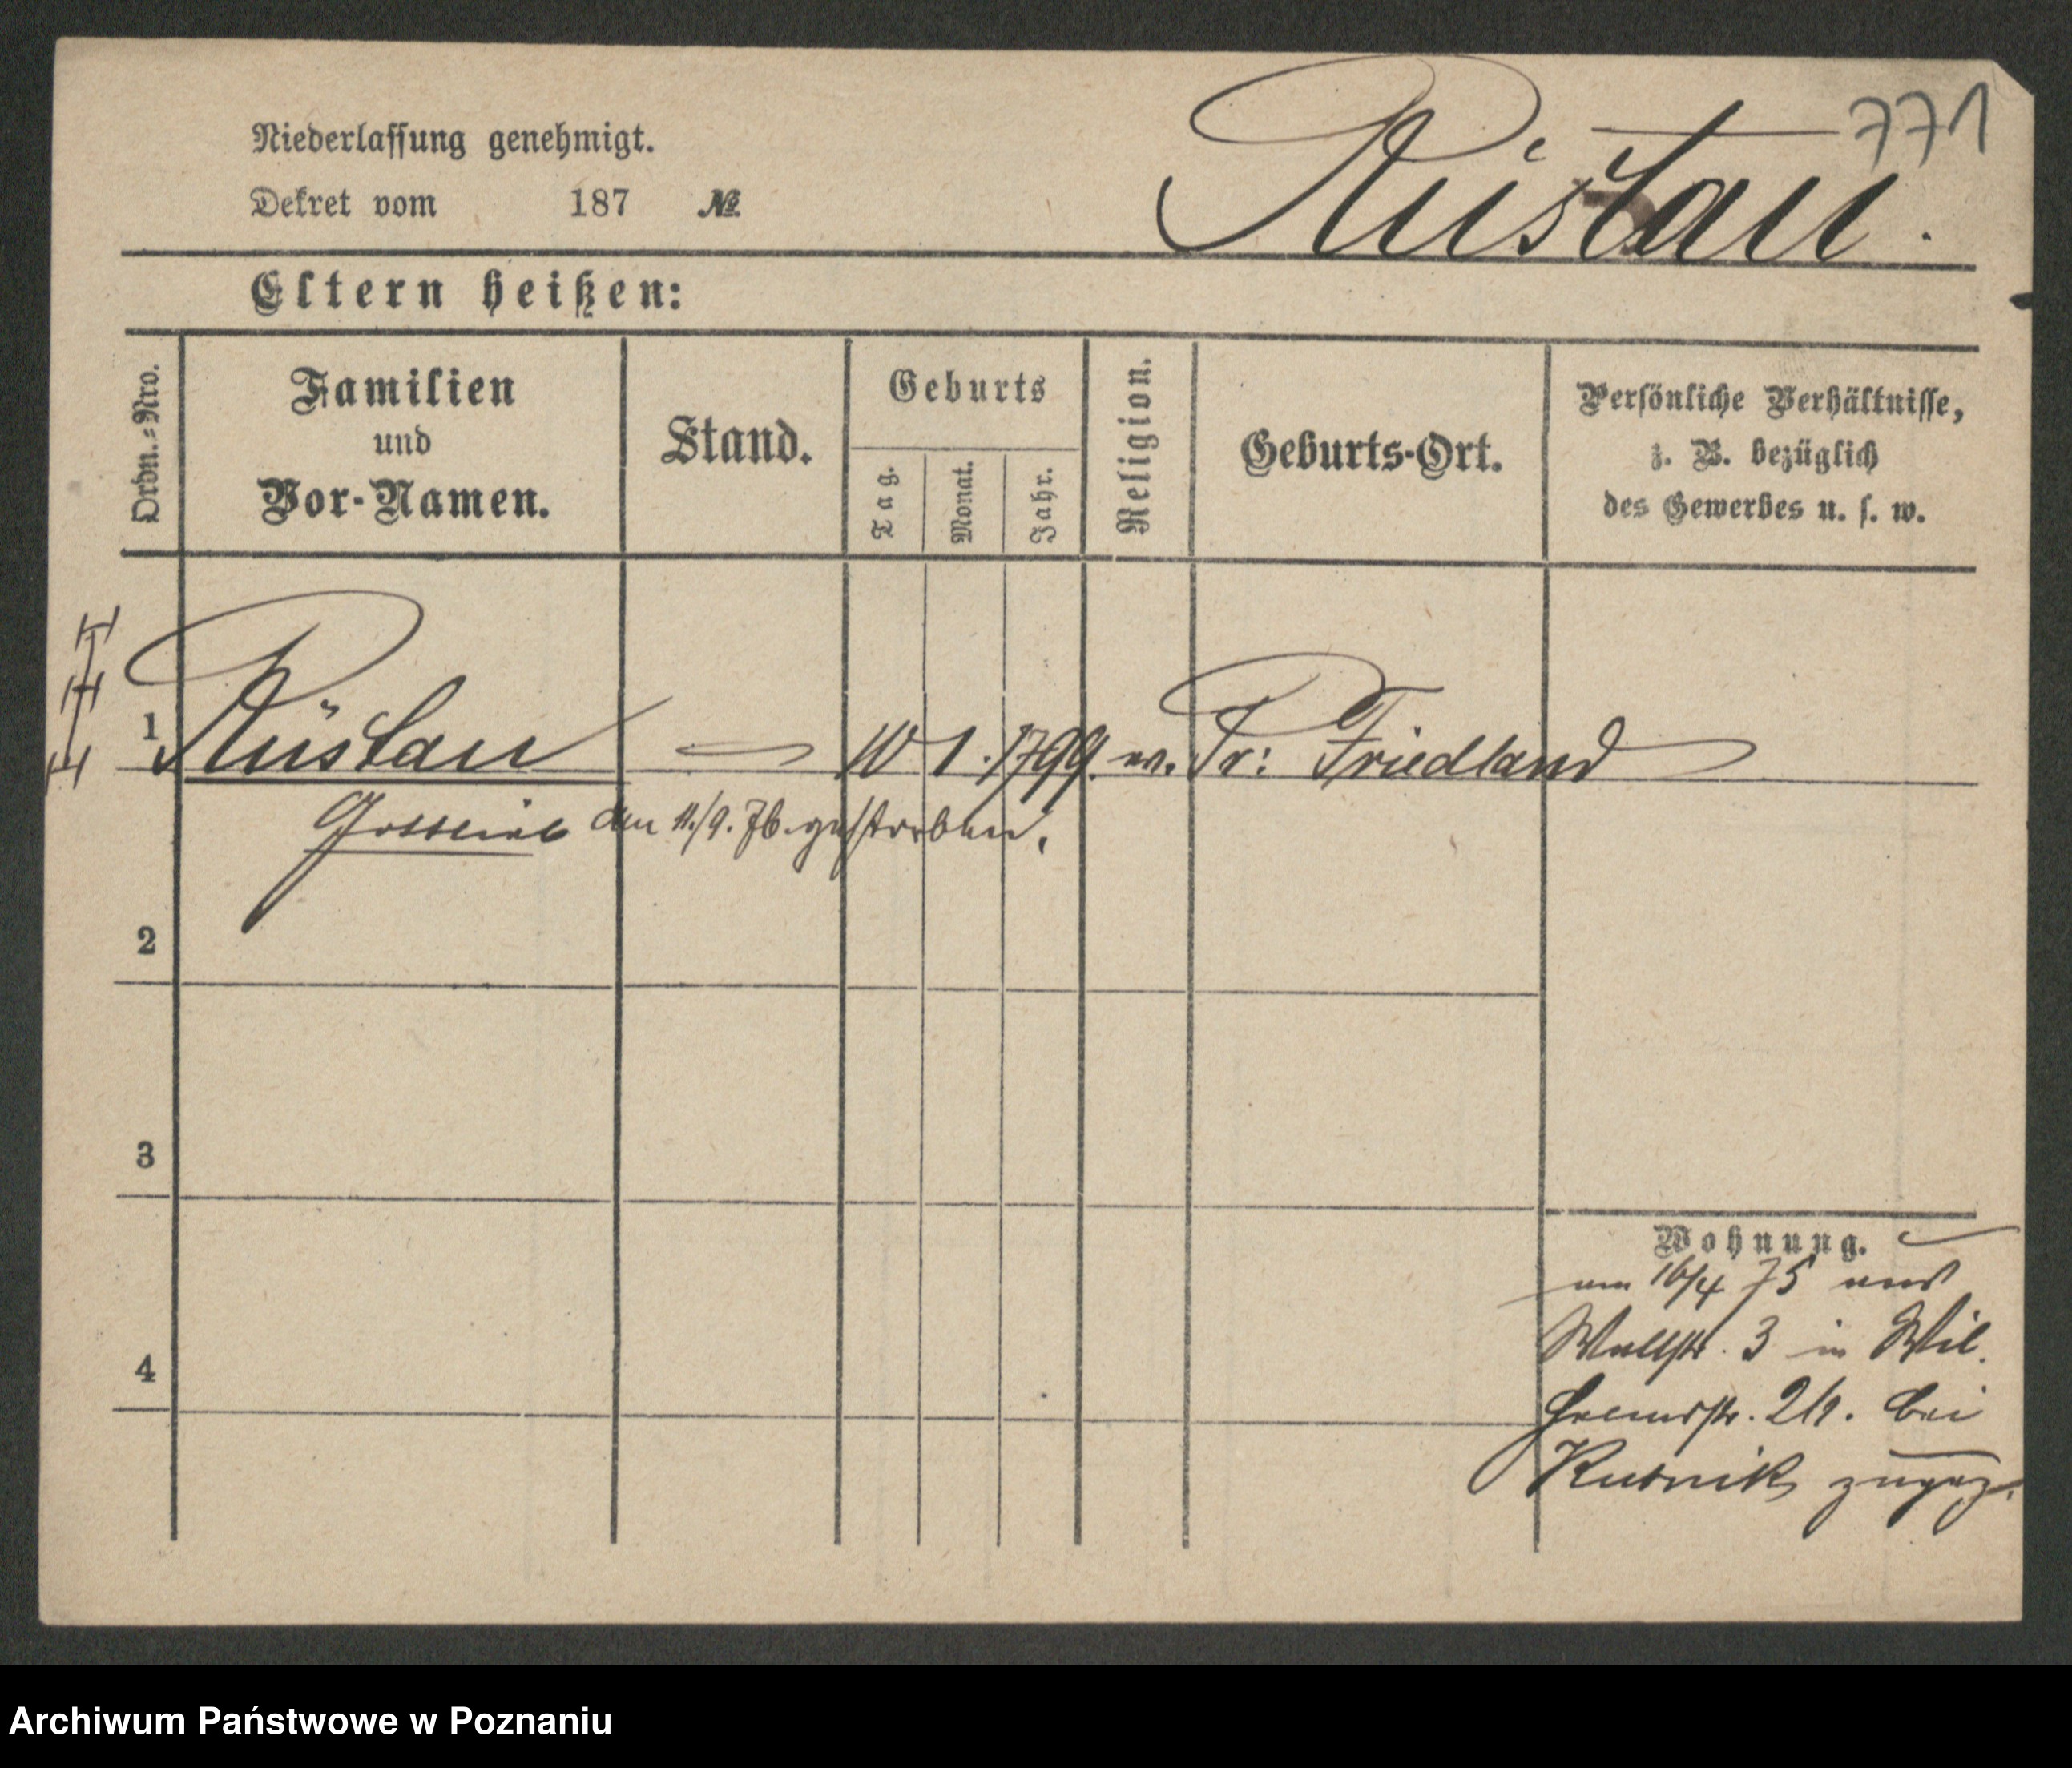 771
Niederlassung genehmigt.
Dekret vom 187 № Rüstau.
Eltern heißen:
Ordn.-Nro.
Familien
und
Vor-Namen.
Stand.
Geburts
Tag.
Monat.
Jahr.
Religion.
Geburts-Ort.
Persönliche Verhältnisse,
z. B. bezüglich
des Gewerbes u. s. w.
1 Rüstau 10 1. 1799. Pr: Friedland
Gottlieb den 11./9. 76. gestorben.
2
3
4
Wohnung.
am 16/4 75 aus
Wallstr. 3 in Wil.
helmsstr. bei
Kutnik zugez.
Archiwum Państwowe w Poznaniu